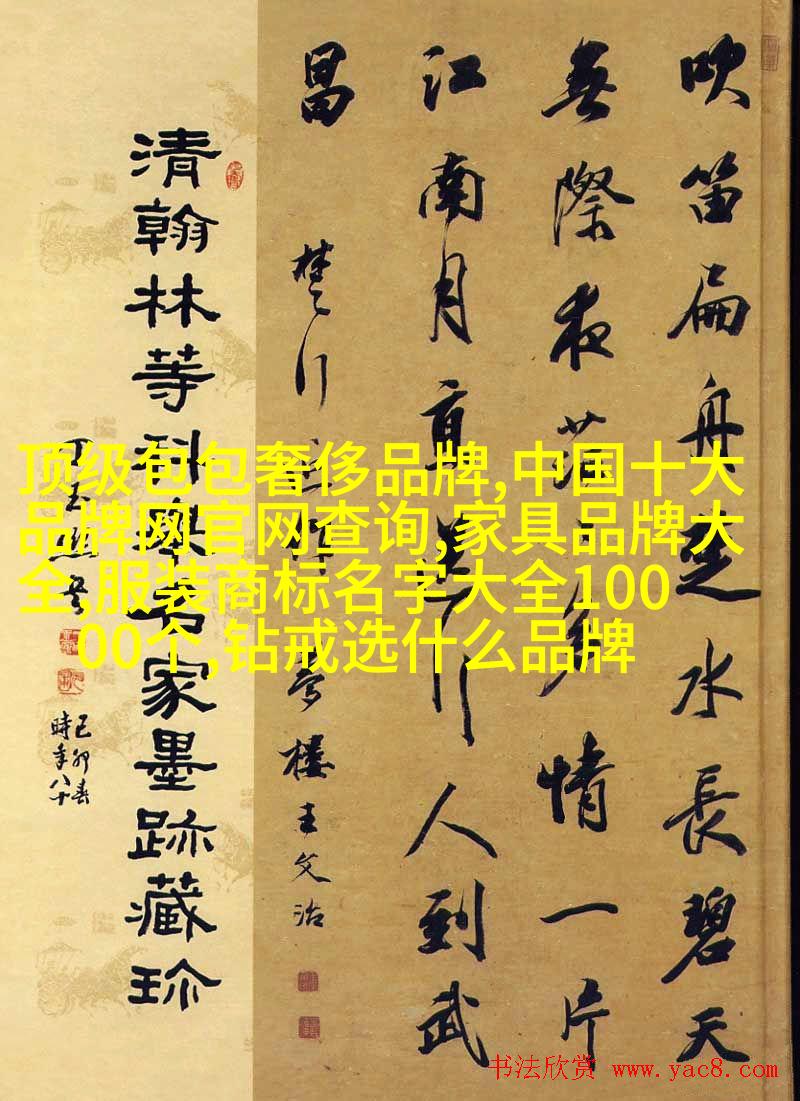 吹笛扁舟楚水長碧天
無際夜茫多情一片
江南月直照行人到武
昌
楚行 夢樓王文治
清翰林等科家墨跡藏珍
己卯春
時年八十
顶级包包奢侈品牌,中国十大
品牌网官网查询,家具品牌大
全,服装商标名字大全100
00个,钻戒选什么品牌
书法欣赏 www.yac8.com